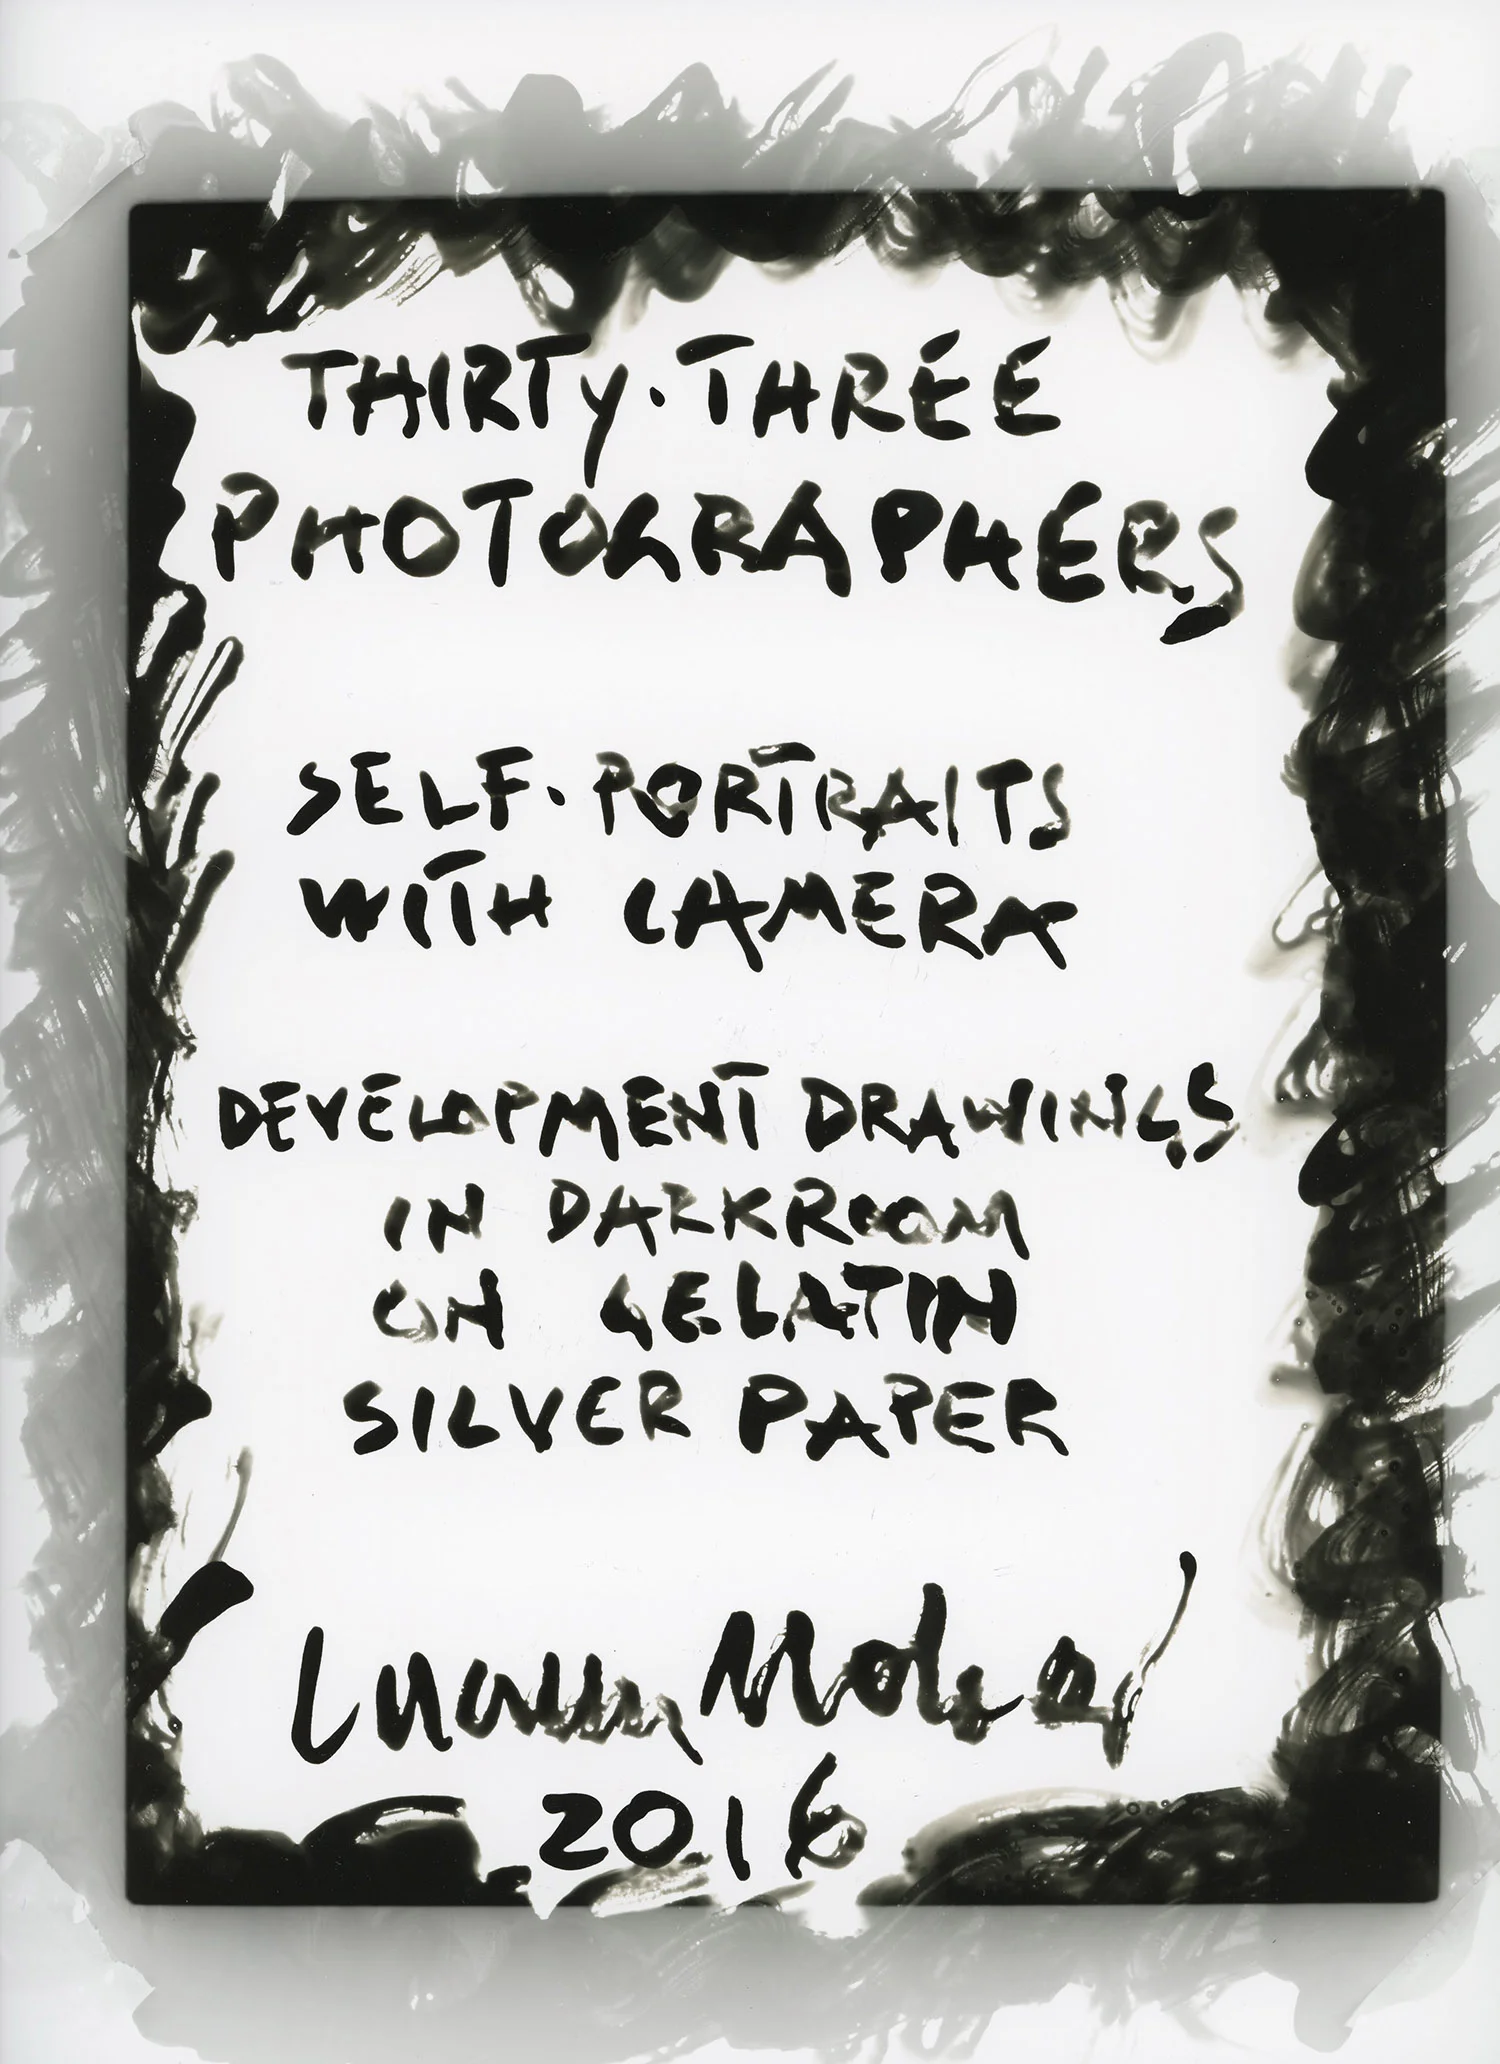 THIRTY·THREE
PHOTOGRAPHERS
SELF·PORTRAITS
WITH CAMERA
DEVELOPMENT DRAWINGS
IN DARKROOM
ON GELATIN
SILVER PAPER
2016